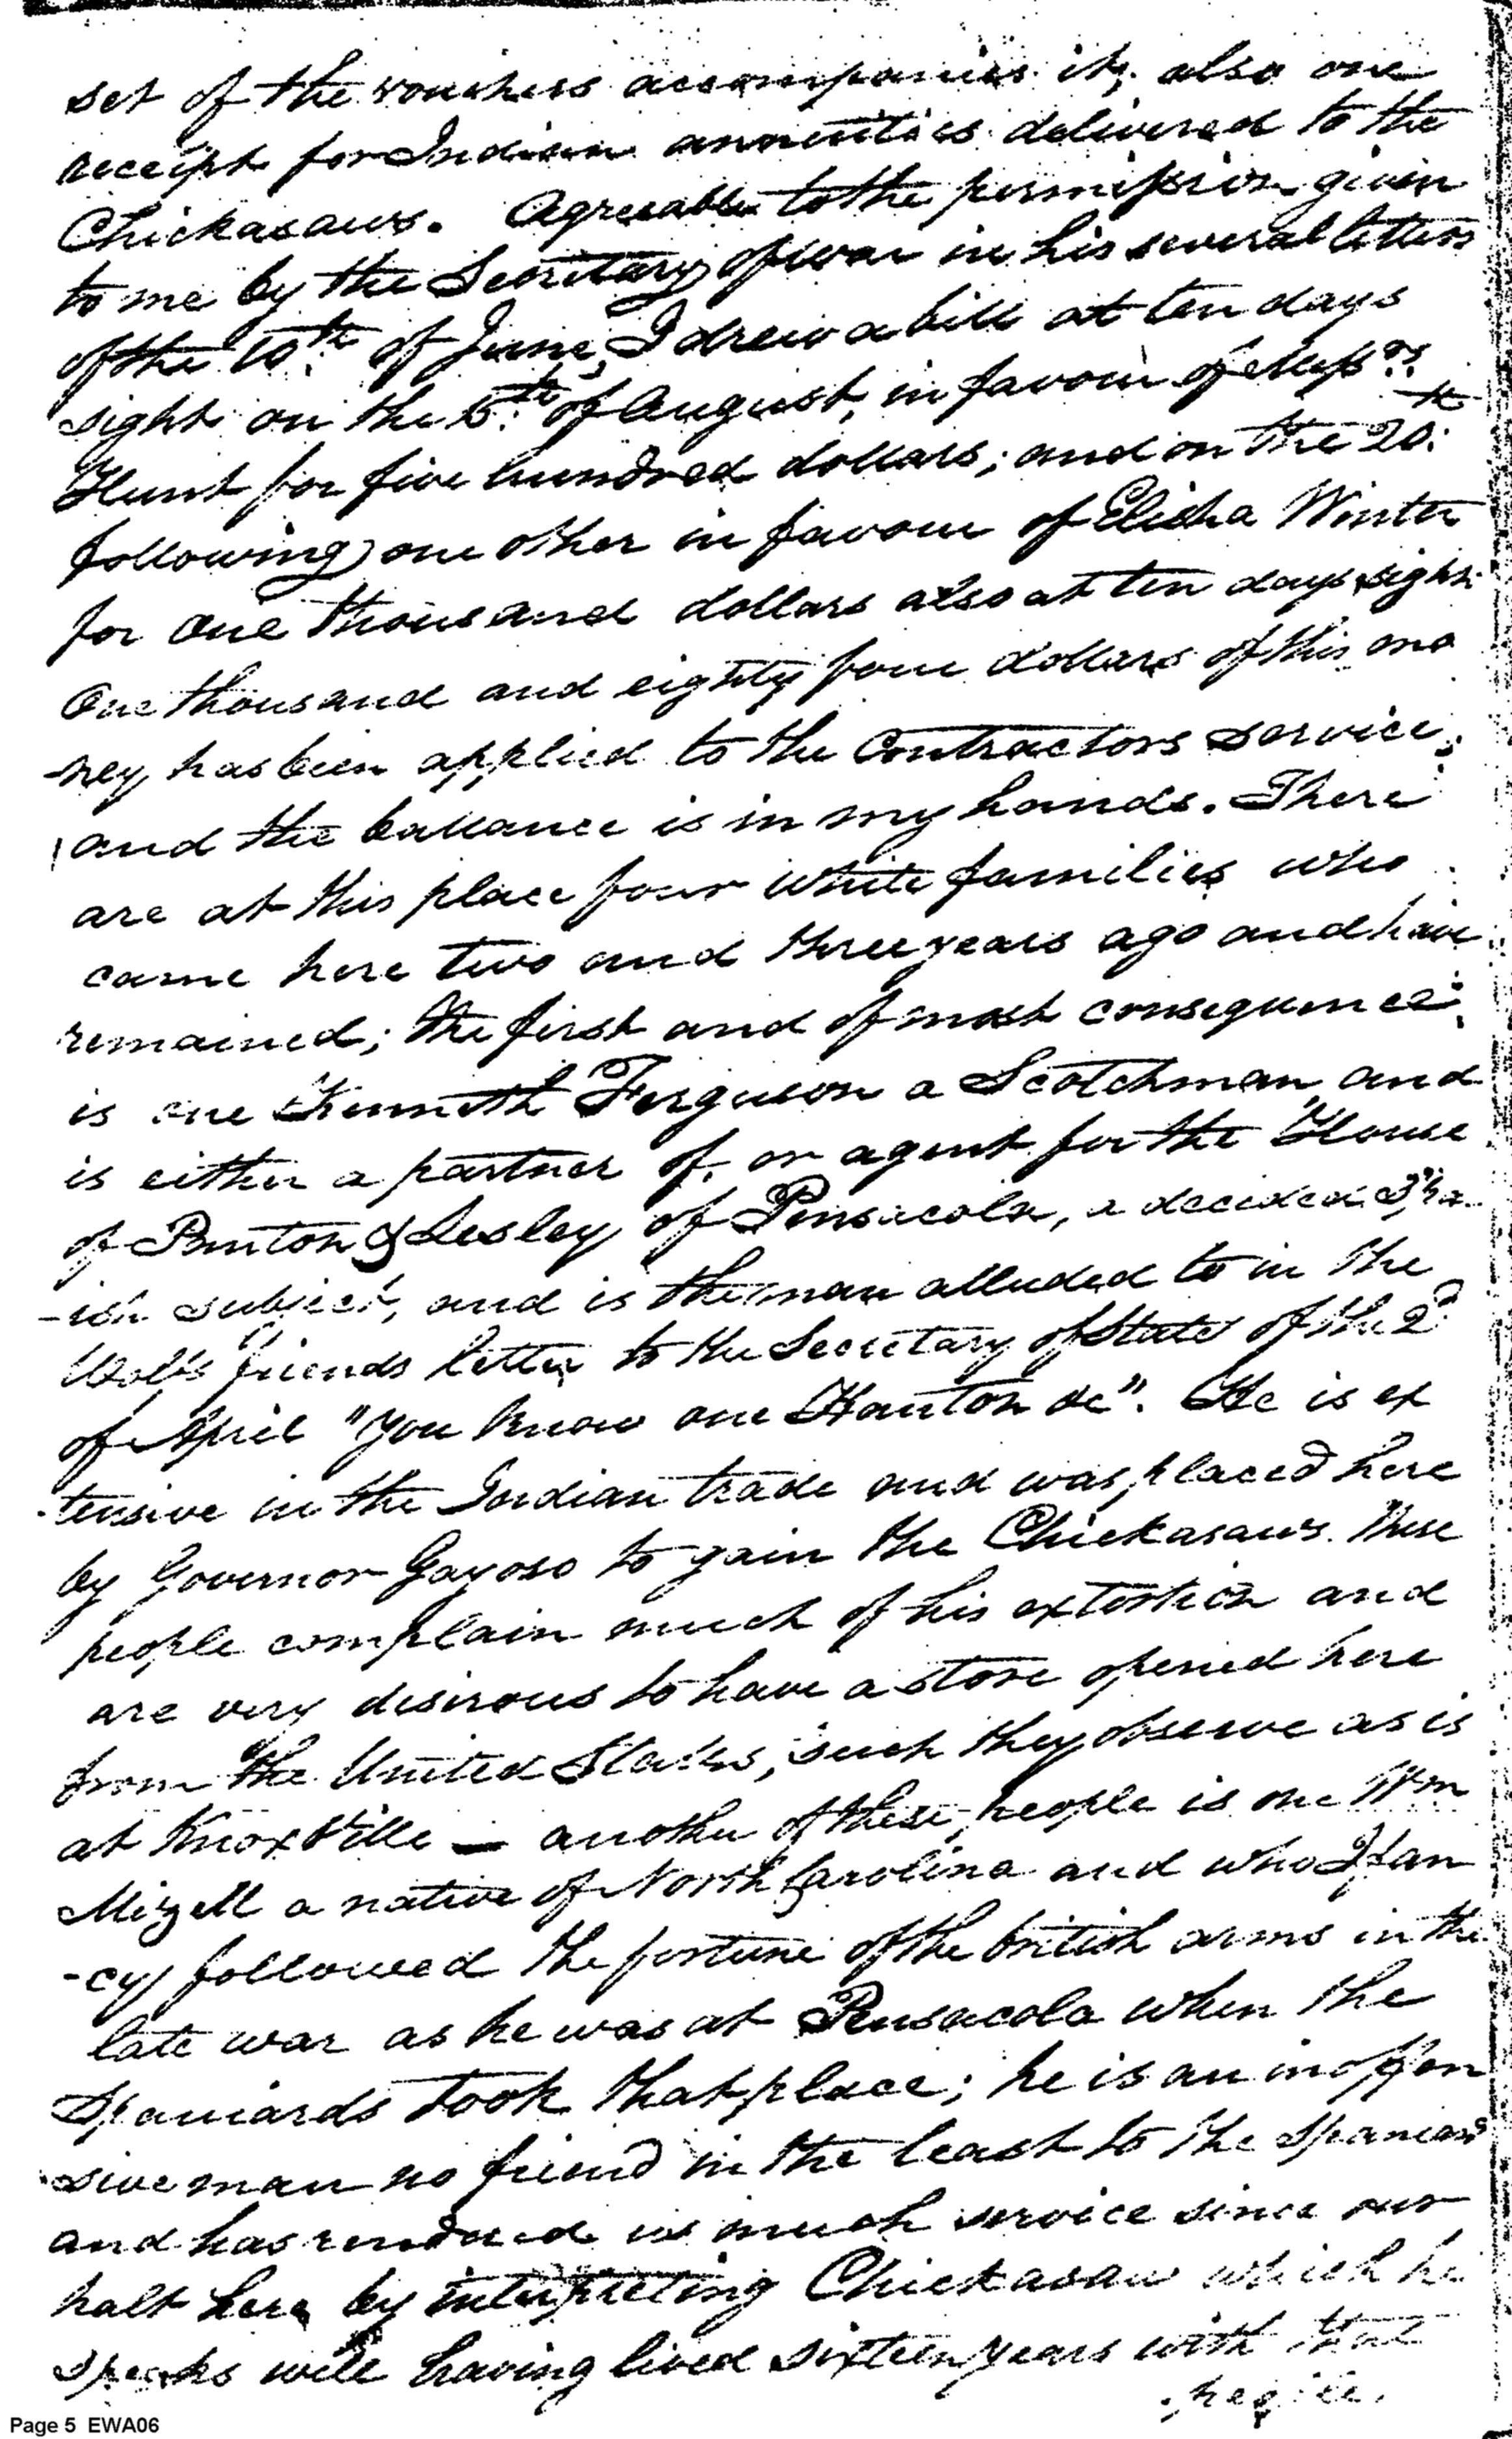 set of the vouchers accompanies it, also one
receipt for Indian annuities delivered to the
Chickasaws. Agreeable to the permission given
to me by the Secretary of war in his several letters
of the 10th of June, I drew a bill at ten days
sight on the 5th of August, in favour of Messrs
Hunt for five hundred dollars; and on the 20th
following one other in favour of Elisha Winter
for one thousand dollars also at ten days sight
One thousand and eighty four dollars of this mo
-ney has been applied to the Contractors service,
and the ballance is in my hands. There
are at this place four white families who
came here two and three years ago and have
remained; the first and of most consequence
is one Kenneth Ferguson a Scotchman, and
is either a partner of, or agent for the House
of Panton & Lesley of Pensacola, a decided Spa
-ish subject, and is the man alluded to in the
Wolf's friends letter to the Secretary of State of the 2d
of April "you know one Hanton &c". He is ex
-tensive in the Indian trade and was placed here
by Governor Gayoso to gain the Chickasaws. These
people complain much of his extortion and
are very desirous to have a store opened here
from the United States, such they observe as is
at KnoxVille — another of these people is one Wm
Mizell a native of North Carolina and who I fan
-cy followed the fortune of the british arms in the
late war as he was at Pensacola when the
Spaniards took that place; he is an inoffen
-sive man no friend in the least to the Spaniards
and has rendered us much service since our
halt here by interpreting Chickasaw which he
speaks well having lived sixteen years with that
people.
Page 5 EWA06